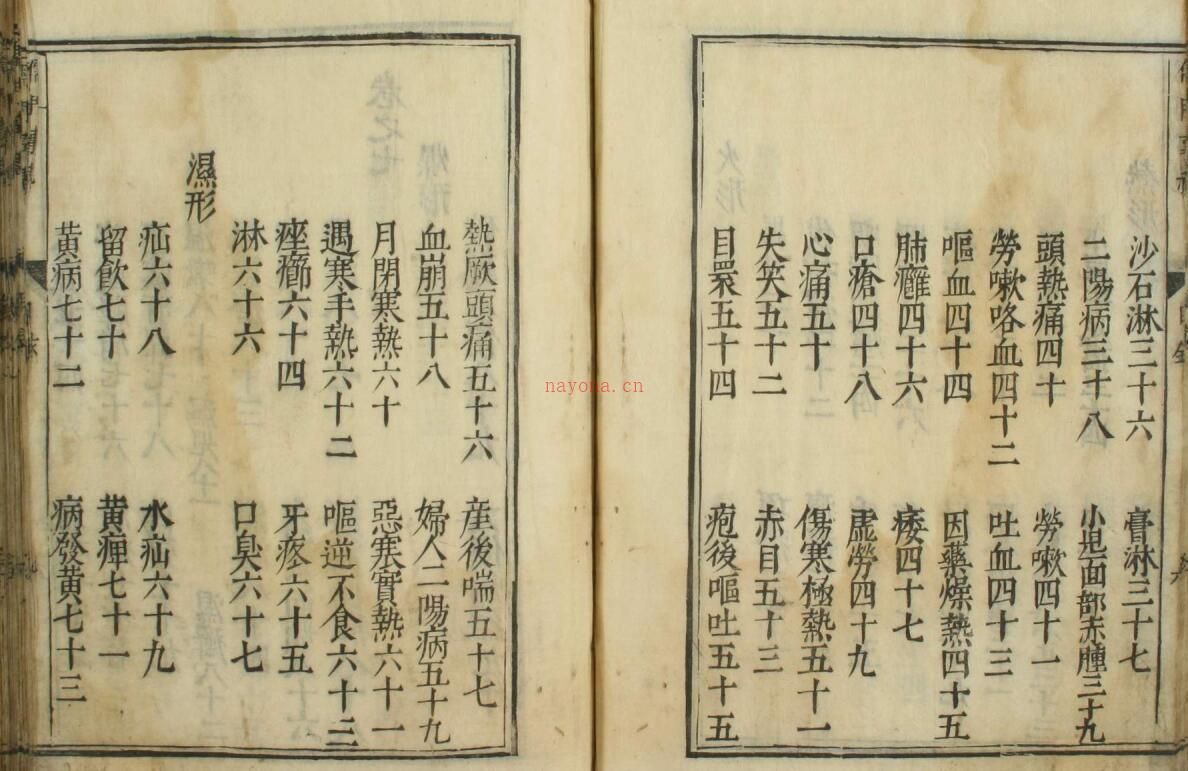 沙石淋三十六 膏淋三十七
二陽病三十八 小児面部赤腫三十九
頭熱痛四十 勞嗽四十一
勞嗽咯血四十二 吐血四十三
嘔血四十四 因藥燥熱四十五
肺癰四十六 痿四十七
口瘡四十八 虛勞四十九
心痛五十 傷寒極熱五十一
失笑五十二 赤目五十三
目睘五十四 疱後嘔吐五十五
熱厥頭痛五十六 産後喘五十七
血崩五十八 婦人二陽病五十九
月閉寒熱六十 惡寒實熱六十一
遇寒手熱六十二 嘔逆不食六十三
痤癤六十四 牙疼六十五
淋六十六 口臭六十七
濕形
疝六十八 水疝六十九
留飲七十 黄痺七十一
黄病七十二 病發黄七十三
nayona.cn